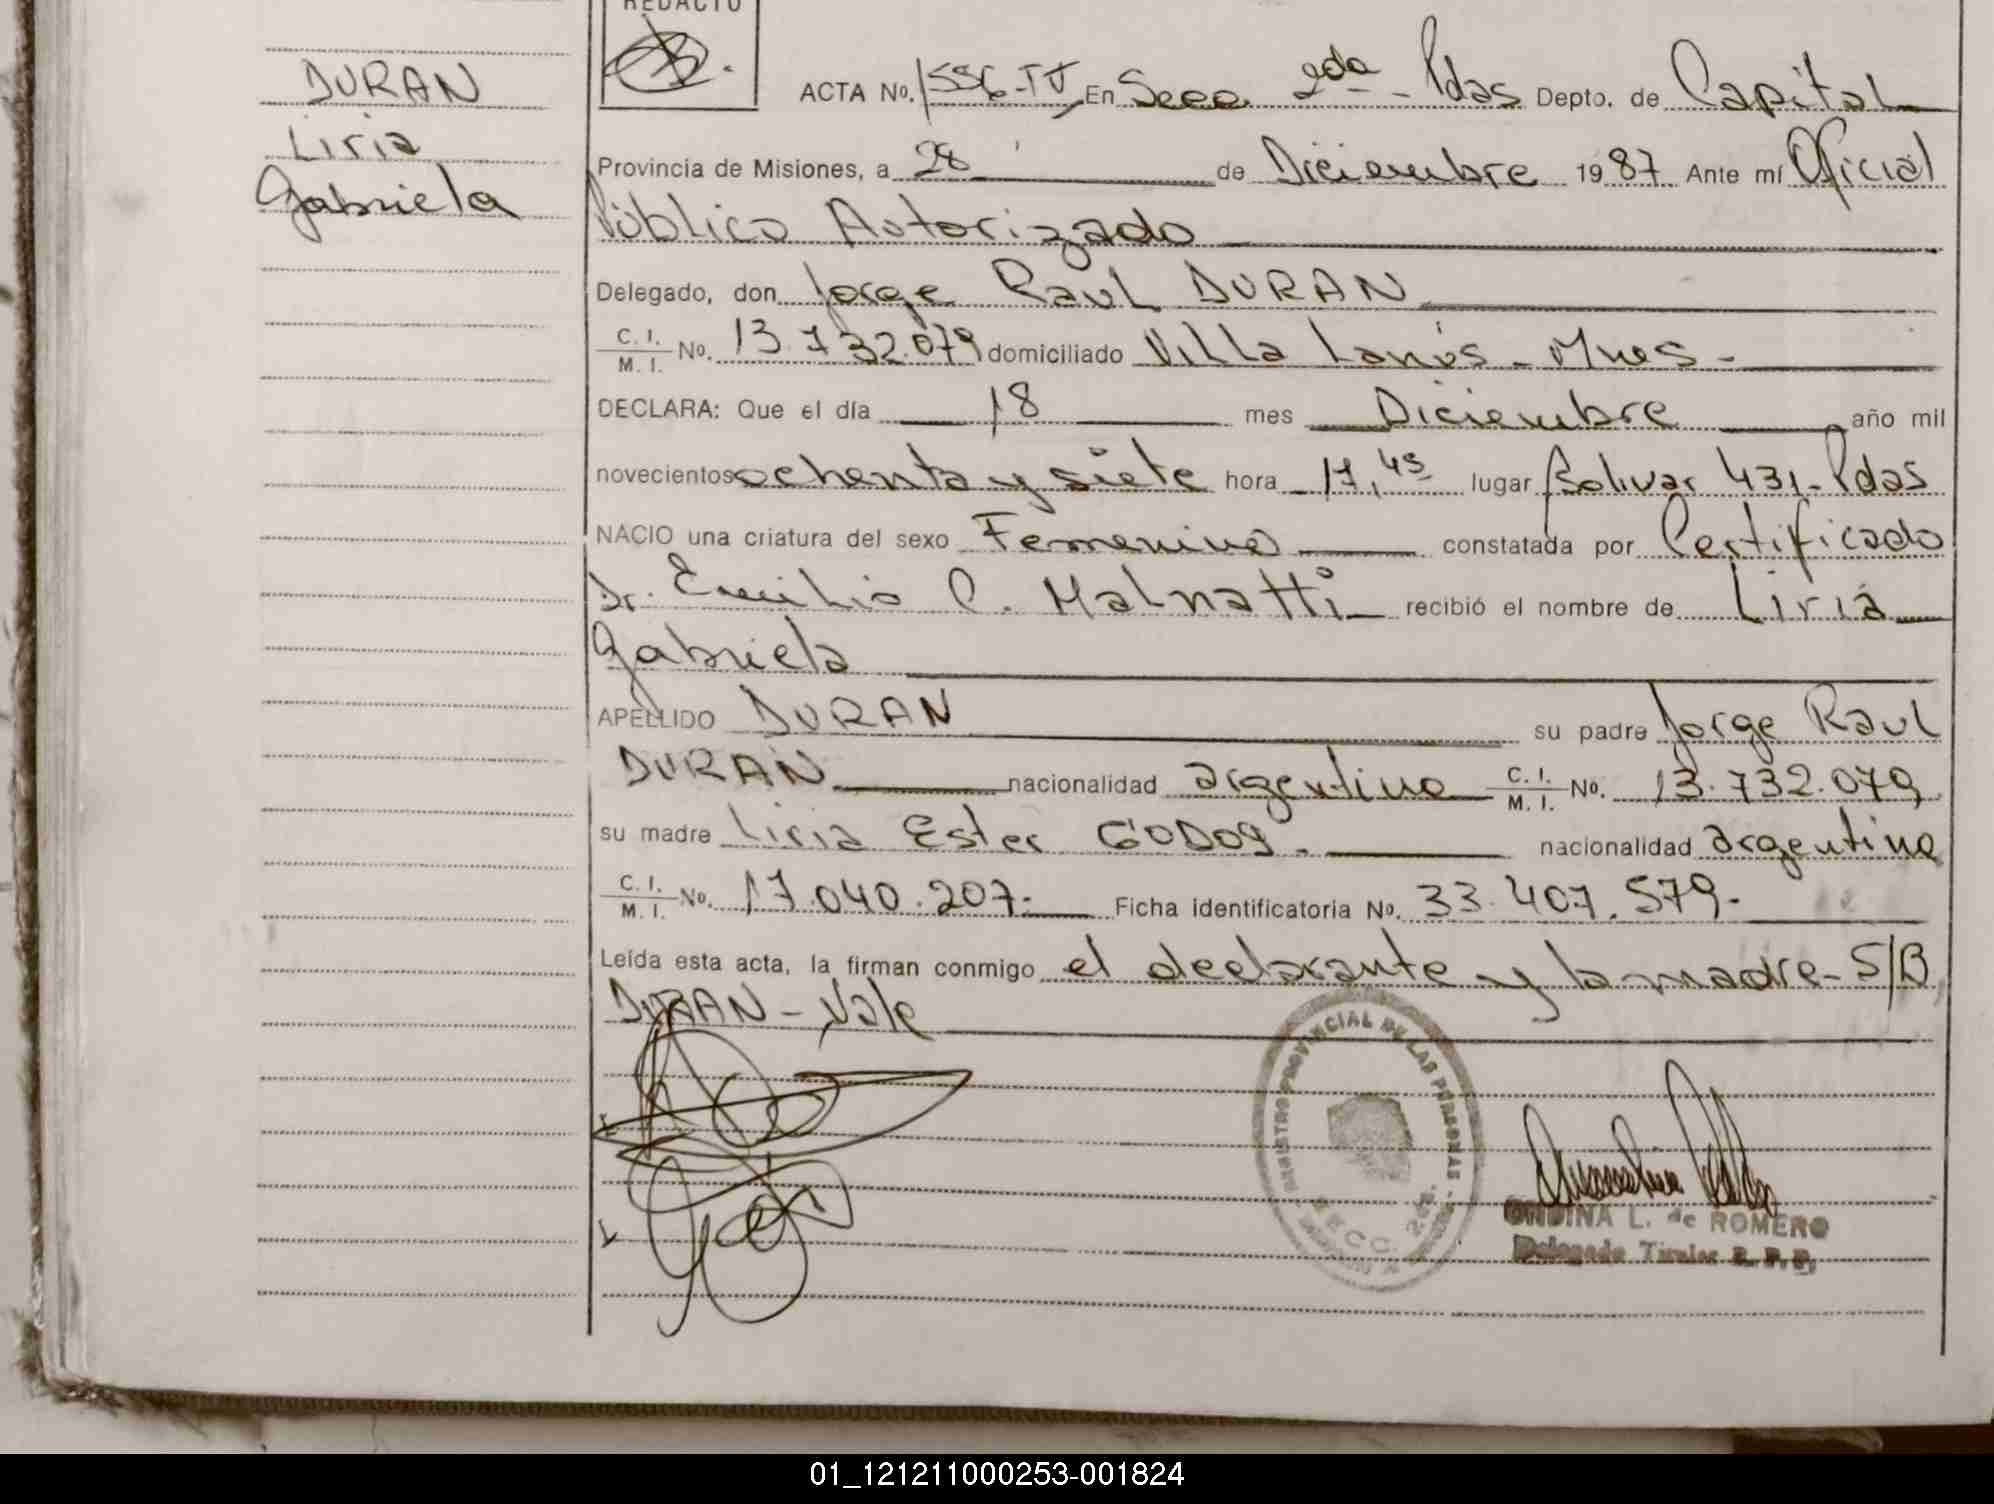 REDACTO
DURAN
Liria
Gabriela
ACTA No. 1556-TV En Secc. 2da - Pdas Depto. de Capital
Provincia de Misiones, a 28 de Diciembre 1987 Ante mí Oficial
Público Autorizado
Delegado, don Jorge Raul DURAN
C. I. / M. I. No. 13.732.079 domiciliado Villa Lanús - Mnes -
DECLARA: Que el día 18 mes Diciembre año mil
novecientos ochenta y siete hora 17,45 lugar Bolivar 431 - Pdas
NACIO una criatura del sexo Femenino constatada por Certificado
Dr. Emilio C. Malnatti recibió el nombre de Liria
Gabriela
APELLIDO DURAN su padre Jorge Raul
DURAN nacionalidad argentino C. I. / M. I. No. 13.732.079,
su madre Liria Ester GODOY. nacionalidad argentina
C. I. / M. I. No. 17.040.207.- Ficha identificatoria No. 33.407.579.-
Leída esta acta, la firman conmigo el declarante y la madre - S/B
DURAN - Vale
REGISTRO PROVINCIAL DE LAS PERSONAS
SECC. 2da.
ONDINA L. de ROMERO
Delegada Titular R. P. P.
01_121211000253-001824